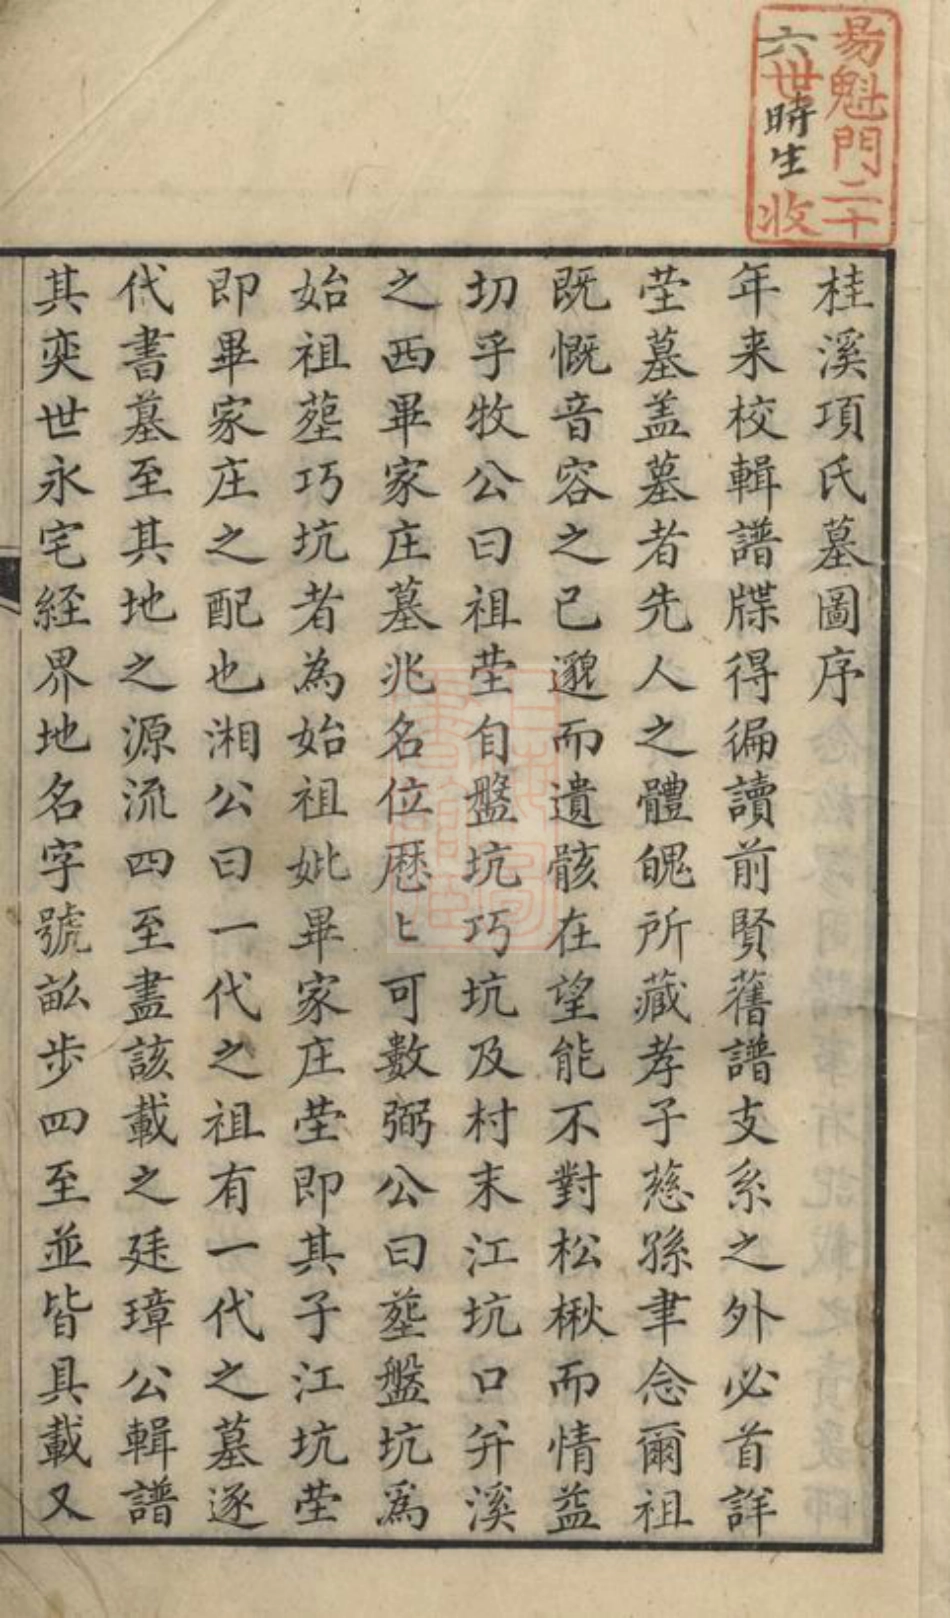 易魁門二十
六世時生收
桂溪項氏墓圖序
年来校輯譜牒得徧讀前賢舊譜支系之外必首詳
塋墓盖墓者先人之體魄所藏孝子慈孫聿念爾祖
既慨音容之已邈而遺骸在望能不對松楸而情益
切乎牧公曰祖塋自盤坑巧坑及村末江坑口并溪
之西畢家庄墓兆名位厯〻可數弼公曰塟盤坑為
始祖塟巧坑者為始祖妣畢家庄塋即其子江坑塋
即畢家庄之配也湘公曰一代之祖有一代之墓遂
代書墓至其地之源流四至盡該載之廷璋公輯譜
其奕世永宅経界地名字號畝步四至並皆具載又